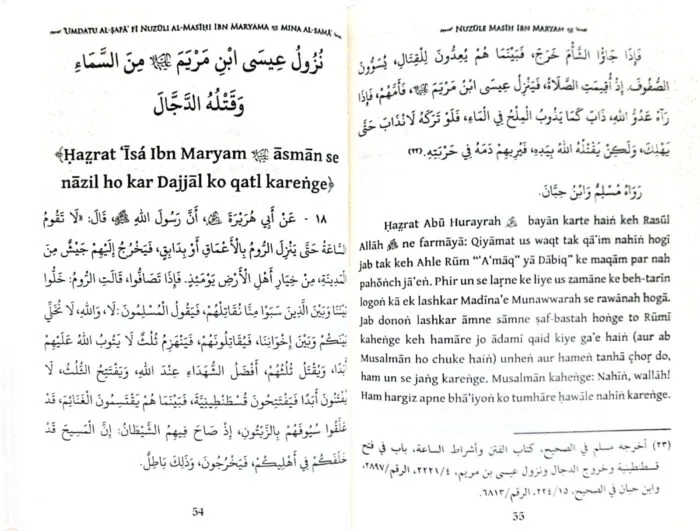 'Umdatu al-Ṣafā' fī Nuzūli al-Masīḥi Ibn Maryama mina al-Samā'
نُزُولُ عِيسَى ابْنِ مَرْيَمَ مِنَ السَّمَاءِ
وَقَتْلُهُ الدَّجَّالَ
﴾Ḥaẓrat 'Īsá Ibn Maryam āsmān se
nāzil ho kar Dajjāl ko qatl kareṅge﴿
١٨ - عَنْ أَبِي هُرَيْرَةَ، أَنَّ رَسُولَ اللهِ ﷺ، قَالَ: «لَا تَقُومُ
السَّاعَةُ حَتَّى يَنْزِلَ الرُّومُ بِالْأَعْمَاقِ أَوْ بِدَابِقٍ، فَيَخْرُجُ إِلَيْهِمْ جَيْشٌ مِنَ
الْمَدِينَةِ، مِنْ خِيَارِ أَهْلِ الْأَرْضِ يَوْمَئِذٍ. فَإِذَا تَصَافُّوا، قَالَتِ الرُّومُ: خَلُّوا
بَيْنَنَا وَبَيْنَ الَّذِينَ سَبَوْا مِنَّا نُقَاتِلْهُمْ، فَيَقُولُ الْمُسْلِمُونَ: لَا، وَاللهِ، لَا نُخَلِّي
بَيْنَكُمْ وَبَيْنَ إِخْوَانِنَا، فَيَنْهَزِمُ ثُلُثٌ لَا يَتُوبُ اللهُ عَلَيْهِمْ
أَبَدًا، وَيُقْتَلُ ثُلُثُهُمْ، أَفْضَلُ الشُّهَدَاءِ عِنْدَ اللهِ، وَيَفْتَتِحُ الثُّلُثُ، لَا
يُفْتَنُونَ أَبَدًا فَيَفْتَتِحُونَ قُسْطَنْطِينِيَّةَ، فَبَيْنَمَا هُمْ يَقْتَسِمُونَ الْغَنَائِمَ، قَدْ
عَلَّقُوا سُيُوفَهُمْ بِالزَّيْتُونِ، إِذْ صَاحَ فِيهِمُ الشَّيْطَانُ: إِنَّ الْمَسِيحَ قَدْ
خَلَفَكُمْ فِي أَهْلِيكُمْ، فَيَخْرُجُونَ، وَذَلِكَ بَاطِلٌ.
54
Nuzūle Masīḥ Ibn Maryam
فَإِذَا جَاؤُا الشَّأْمَ خَرَجَ، فَبَيْنَمَا هُمْ يُعِدُّونَ لِلْقِتَالِ، يُسَوُّونَ
الصُّفُوفَ، إِذْ أُقِيمَتِ الصَّلَاةُ، فَيَنْزِلُ عِيسَى ابْنُ مَرْيَمَ، فَأَمَّهُمْ، فَإِذَا
رَآهُ عَدُوُّ اللهِ، ذَابَ كَمَا يَذُوبُ الْمِلْحُ فِي الْمَاءِ، فَلَوْ تَرَكَهُ لَانْذَابَ حَتَّى
يَهْلِكَ، وَلَكِنْ يَقْتُلُهُ اللهُ بِيَدِهِ، فَيُرِيهِمْ دَمَهُ فِي حَرْبَتِهِ. (٢٣)
رَوَاهُ مُسْلِمٌ وَابْنُ حِبَّانَ.
Ḥaẓrat Abū Hurayrah bayān karte haiṅ keh Rasūl
Allāh ne farmāyā: Qiyāmat us waqt tak qā'im nahīṅ hogī
jab tak keh Ahle Rūm "'A'māq" yā Dābiq" ke maqām par nah
pahoṅch jā'eṅ. Phir un se laṛne ke liye us zamāne ke beh-tarīn
logoṅ kā ek lashkar Madīna'e Munawwarah se rawānah hogā.
Jab donoṅ lashkar āmne sāmne ṣaf-bastah hoṅge to Rūmī
kaheṅge keh hamāre jo ādamī qaid kiye ga'e haiṅ (aur ab
Musalmān ho chuke haiṅ) unheṅ aur hameṅ tanhā choṛ do,
ham un se jaṅg kareṅge. Musalmān kaheṅge: Nahīṅ, wallāh!
Ham hargiz apne bhā'iyoṅ ko tumhāre ḥawāle nahīṅ kareṅge.
(٢٣) أخرجه مسلم في الصحيح، كتاب الفتن وأشراط الساعة، باب في فتح
قسطنطينية وخروج الدجال ونزول عيسى بن مريم، ٤/٢٢٢١، الرقم/٢٨٩٧،
وابن حبان في الصحيح، ١٥/٢٢٤، الرقم/٦٨١٣.
55